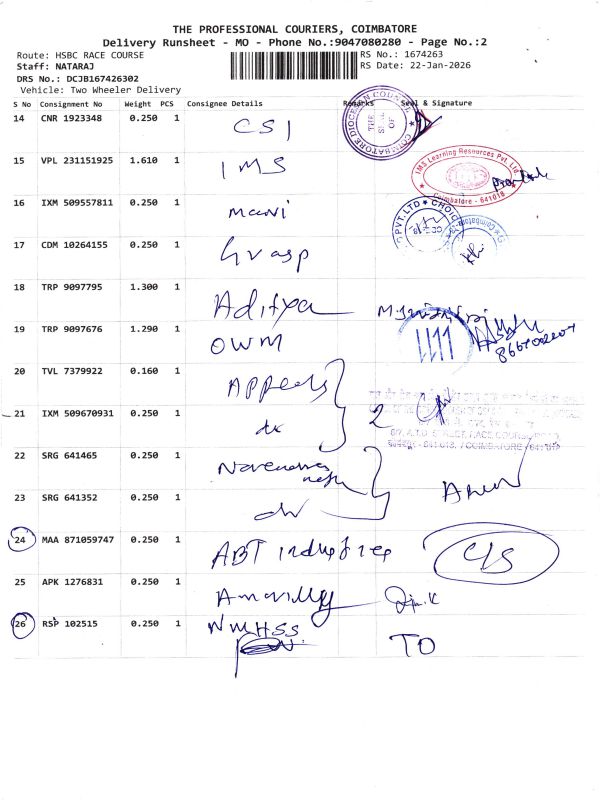 THE PROFESSIONAL COURIERS, COIMBATORE
Delivery Runsheet - MO - Phone No.:9047080280 - Page No.:2
Route: HSBC RACE COURSE
RS No.: 1674263
Staff: NATARAJ
RS Date: 22-Jan-2026
DRS No.: DCJB167426302
Vehicle: Two Wheeler Delivery
S No Consignment No Weight PCS Consignee Details Remarks Seal & Signature
14 CNR 1923348 0.250 1 CSI
COIMBATORE DIOCESAN COUNCIL
THE SEAL OF
15 VPL 231151925 1.610 1 IMS
I.M.S Learning Resources Pvt. Ltd.
Coimbatore - 641018
16 IXM 509557811 0.250 1 Mani
PVT. LTD CHOICE
17 CDM 10264155 0.250 1 Grasp
Coimbatore
18 TRP 9097795 1.300 1 Aditya
19 TRP 9097676 1.290 1 OWM
20 TVL 7379922 0.160 1 Appeals
21 IXM 509670931 0.250 1 do 2
RACE COURSE
641 018. / COIMBATORE - 641 018
22 SRG 641465 0.250 1
23 SRG 641352 0.250 1 do
24 MAA 871059747 0.250 1 ABT industries
25 APK 1276831 0.250 1
26 RSP 102515 0.250 1 NMHSS TO